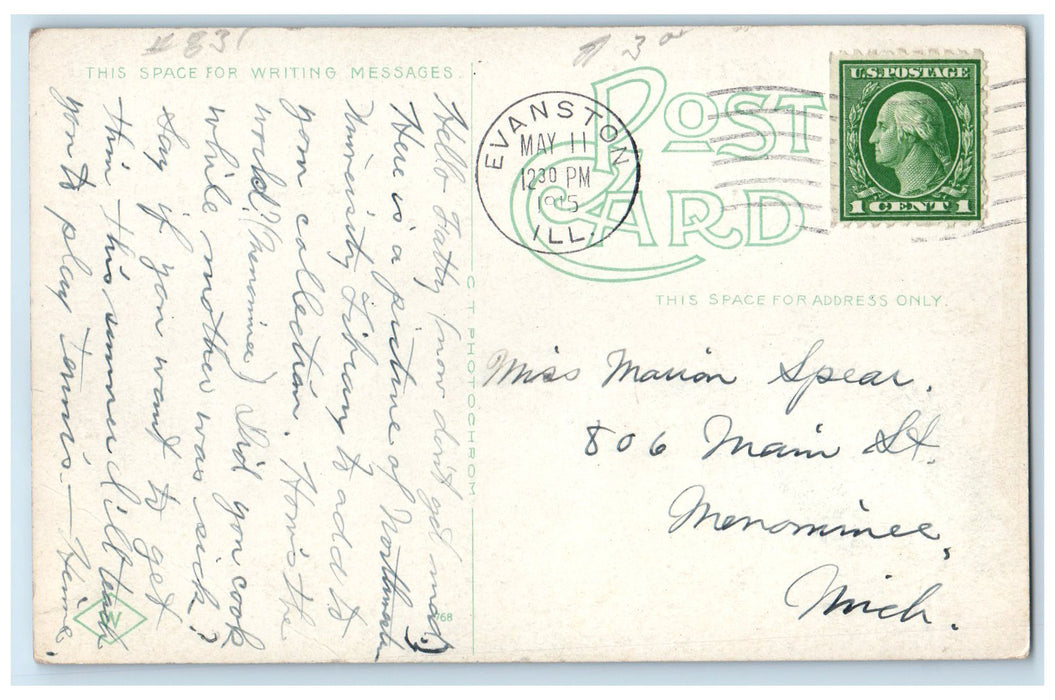 # 831
9 3
THIS SPACE FOR WRITING MESSAGES.
POST CARD
EVANSTON
MAY 11
12 30 PM
1915
ILL.
U.S. POSTAGE
1 CENT 1
THIS SPACE FOR ADDRESS ONLY.
Hello Fatty (now don't get mad.)
Here is a picture of Northwestern
University Library to add to
your collection. How's the
world? (Menominee) Did you cook
while mother was sick?
Say if you want to get
thin this summer I'll teach
you to play tennis. — Heine.
C T PHOTOCHROM
Miss Marion Spear.
806 Main St.
Menominee,
Mich.
W
768